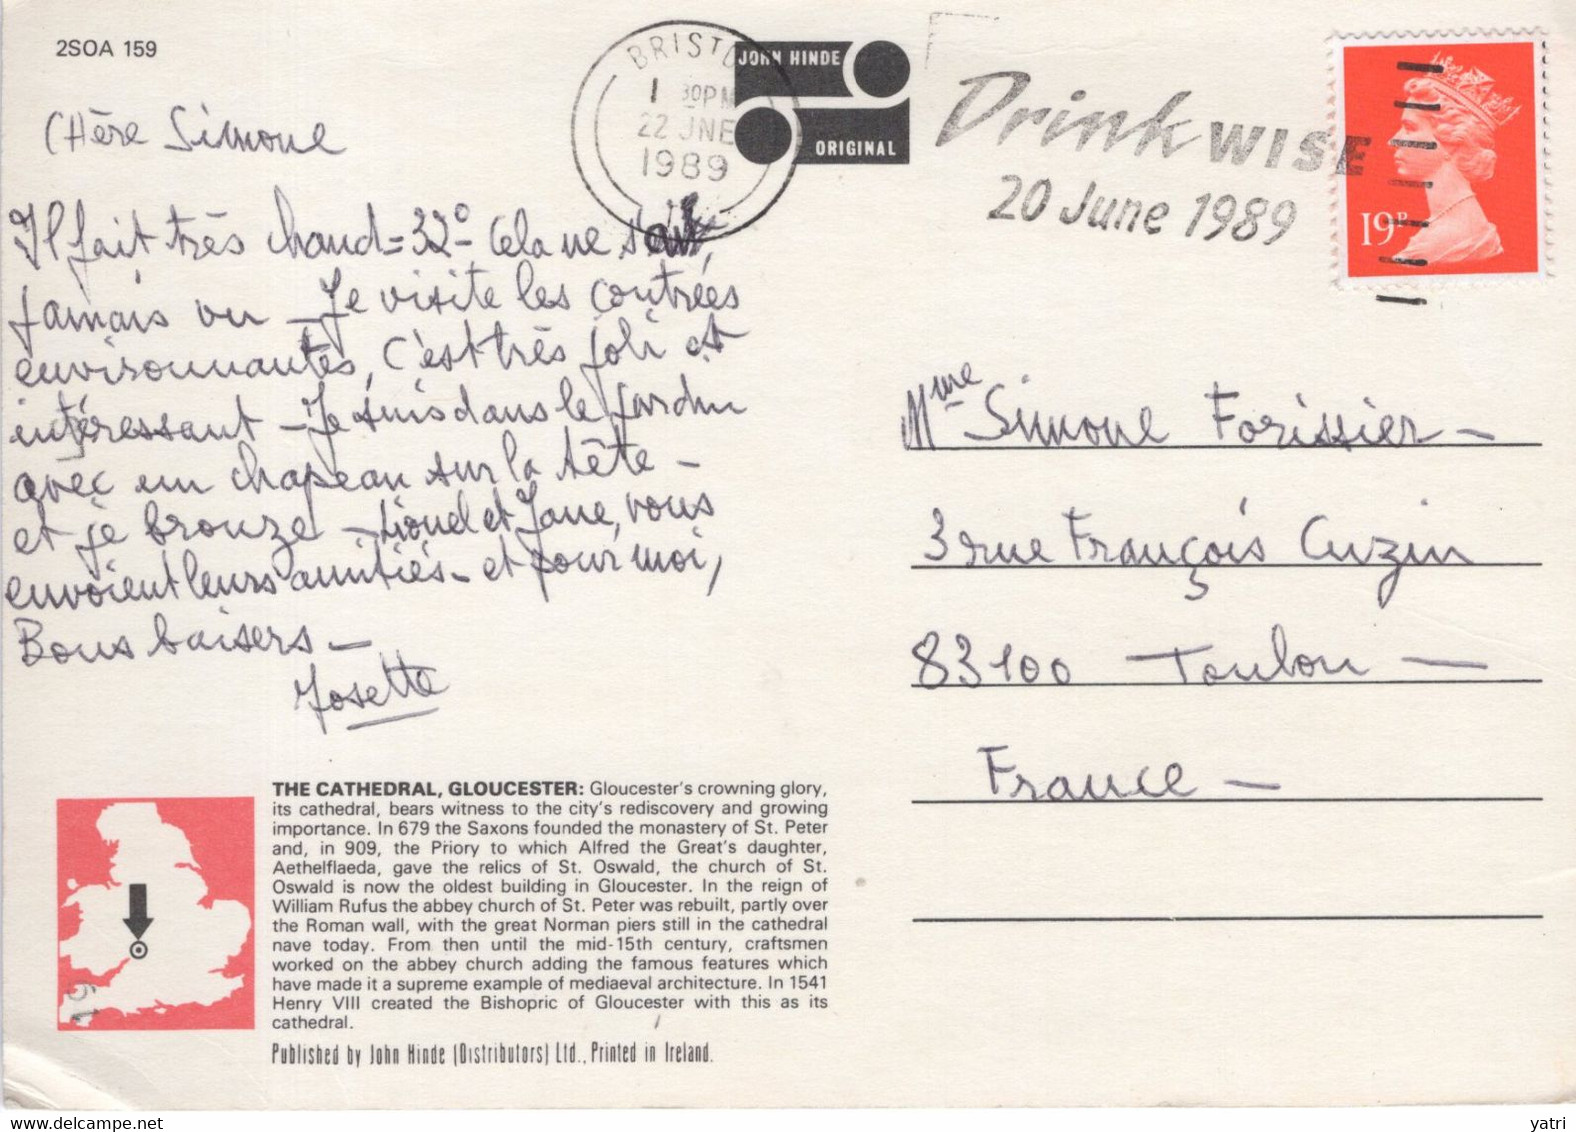 2SOA 159
BRISTO
1 30PM
22 JNE
1989
JOHN HINDE
ORIGINAL
Drink WISE
20 June 1989
19P
CHère Simone
Il fait très chaud = 32° - Cela ne s'était
jamais vu - Je visite les contrées
environnantes, c'est très joli et
intéressant - Je suis dans le jardin
avec un chapeau sur la tête -
et je bronze - Lionel et Jane, vous
envoient leurs amitiés - et pour moi,
Bons baisers -
Josette
Mme Simone Forissier -
3 rue François Cuzin
83100 - Toulon -
France -
THE CATHEDRAL, GLOUCESTER: Gloucester's crowning glory,
its cathedral, bears witness to the city's rediscovery and growing
importance. In 679 the Saxons founded the monastery of St. Peter
and, in 909, the Priory to which Alfred the Great's daughter,
Aethelflaeda, gave the relics of St. Oswald, the church of St.
Oswald is now the oldest building in Gloucester. In the reign of
William Rufus the abbey church of St. Peter was rebuilt, partly over
the Roman wall, with the great Norman piers still in the cathedral
nave today. From then until the mid-15th century, craftsmen
worked on the abbey church adding the famous features which
have made it a supreme example of mediaeval architecture. In 1541
Henry VIII created the Bishopric of Gloucester with this as its
cathedral.
Published by John Hinde (Distributors) Ltd., Printed in Ireland.
yatri